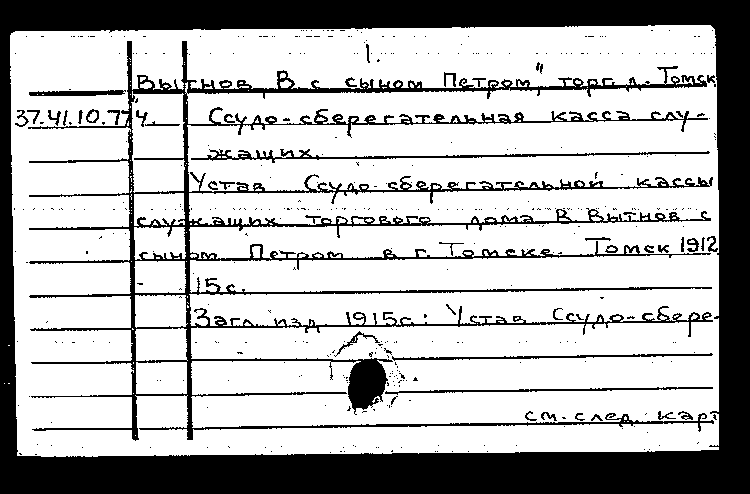 1.
"Вытнов, В. с сыном Петром", торг. д. Томск
37.41.10.774. Ссудо-сберегательная касса слу-
жащих.
Устав Ссудо-сберегательной кассы
служащих торгового дома В. Вытнов с
сыном Петром в г. Томске. Томск, 1912
15с.
Загл. изд. 1915с: Устав Ссудо-сбере-
см. след. карт